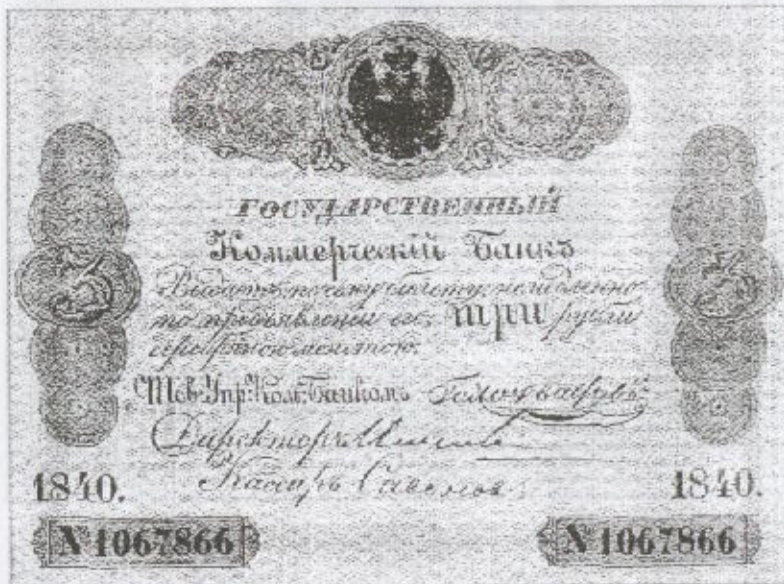 ГОСУДАРСТВЕННЫЙ
Коммерческій Банкъ
Выдаетъ по сему билету, немедленно
по предъявленіи его, три рубли
серебряною монетою.
Тов: Упр: Ком: Банкомъ
Директоръ
Кассиръ
1840. 1840.
N 1067866 N 1067866